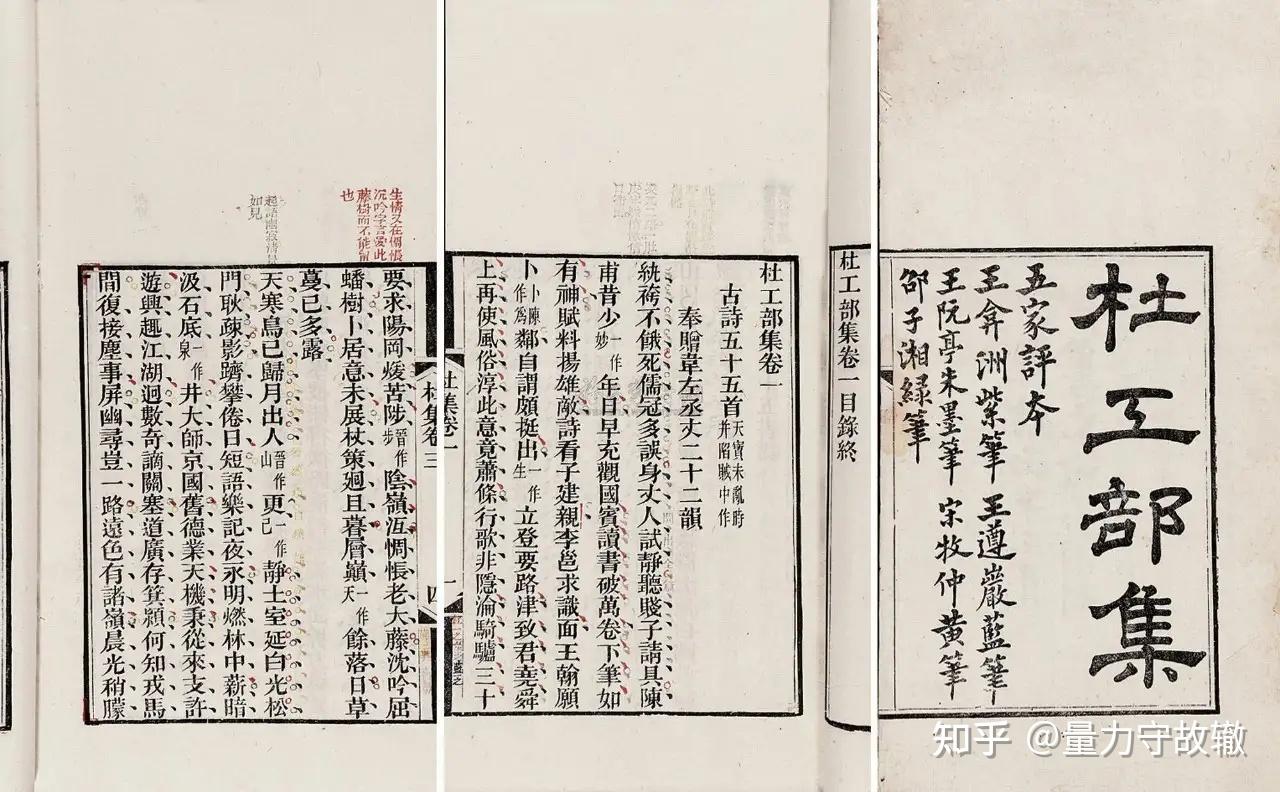 杜工部集
五家評本
王弇洲紫筆 王遵巖藍筆
王阮亭朱墨筆 宋牧仲黃筆
邵子湘綠筆
杜工部集卷一目錄終
杜工部集卷一
古詩五十五首天寶未亂時并陷賊中作
奉贈韋左丞丈二十二韻
紈袴不餓死儒冠多誤身丈人試靜聽賤子請具陳
甫昔少一作妙年日早充觀國賓讀書破萬卷下筆如
有神賦料揚雄敵詩看子建親李邕求識面王翰願
卜卜隣一作為鄰自謂頗挺出一作生立登要路津致君堯舜
上再使風俗淳此意竟蕭條行歌非隱淪騎驢三十
杜集卷一
一
杜集卷三
四
生情又在惆悵
沉吟字言愛此
藤樹而不能
也
起語幽寂清景
如見
要求陽岡煖苦陟晉作步陰嶺沍惆悵老大藤沈吟屈
蟠樹卜居意未展杖策迴且暮層巔一作天餘落日草
蔓已多露
天寒鳥已歸月出人晉作山更一作已靜土室延白光松
門耿疎影躋攀倦日短語樂記夜永明燃林中薪暗
汲石底一作泉井大師京國舊德業天機秉從來支許
遊興趣江湖迥數奇謫關塞道廣存箕潁何知戎馬
間復接塵事屏幽尋豈一路遠色有諸嶺晨光稍朦
知乎 @量力守故辙